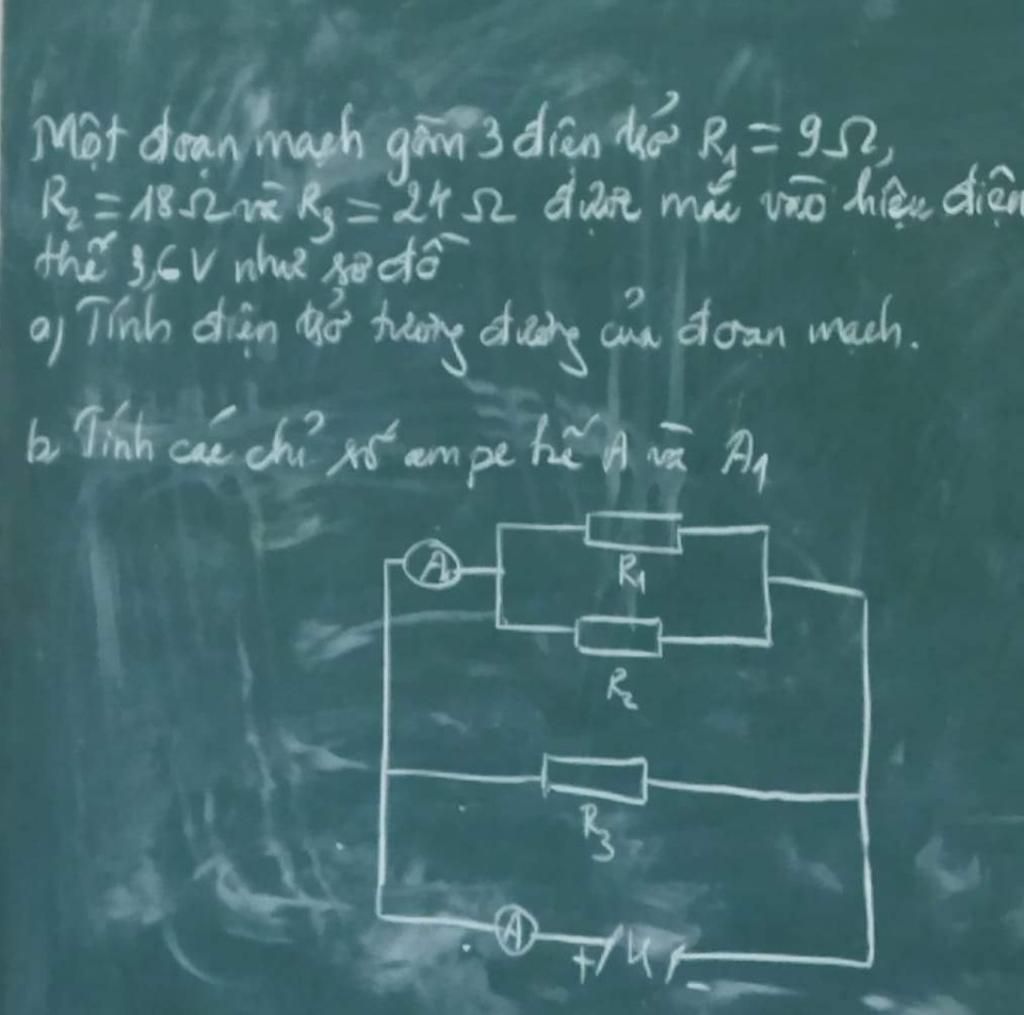 Một đoạn mạch gồm 3 điện trở R₁ = 9Ω,
R₂ = 18Ω và R₃ = 24Ω được mắc vào hiệu điện
thế 3,6V như sơ đồ
a) Tính điện trở tương đương của đoạn mạch.
b Tính các chỉ số ampe kế A và A₁
R₁
A₁
R₂
R₃
A
+ U -